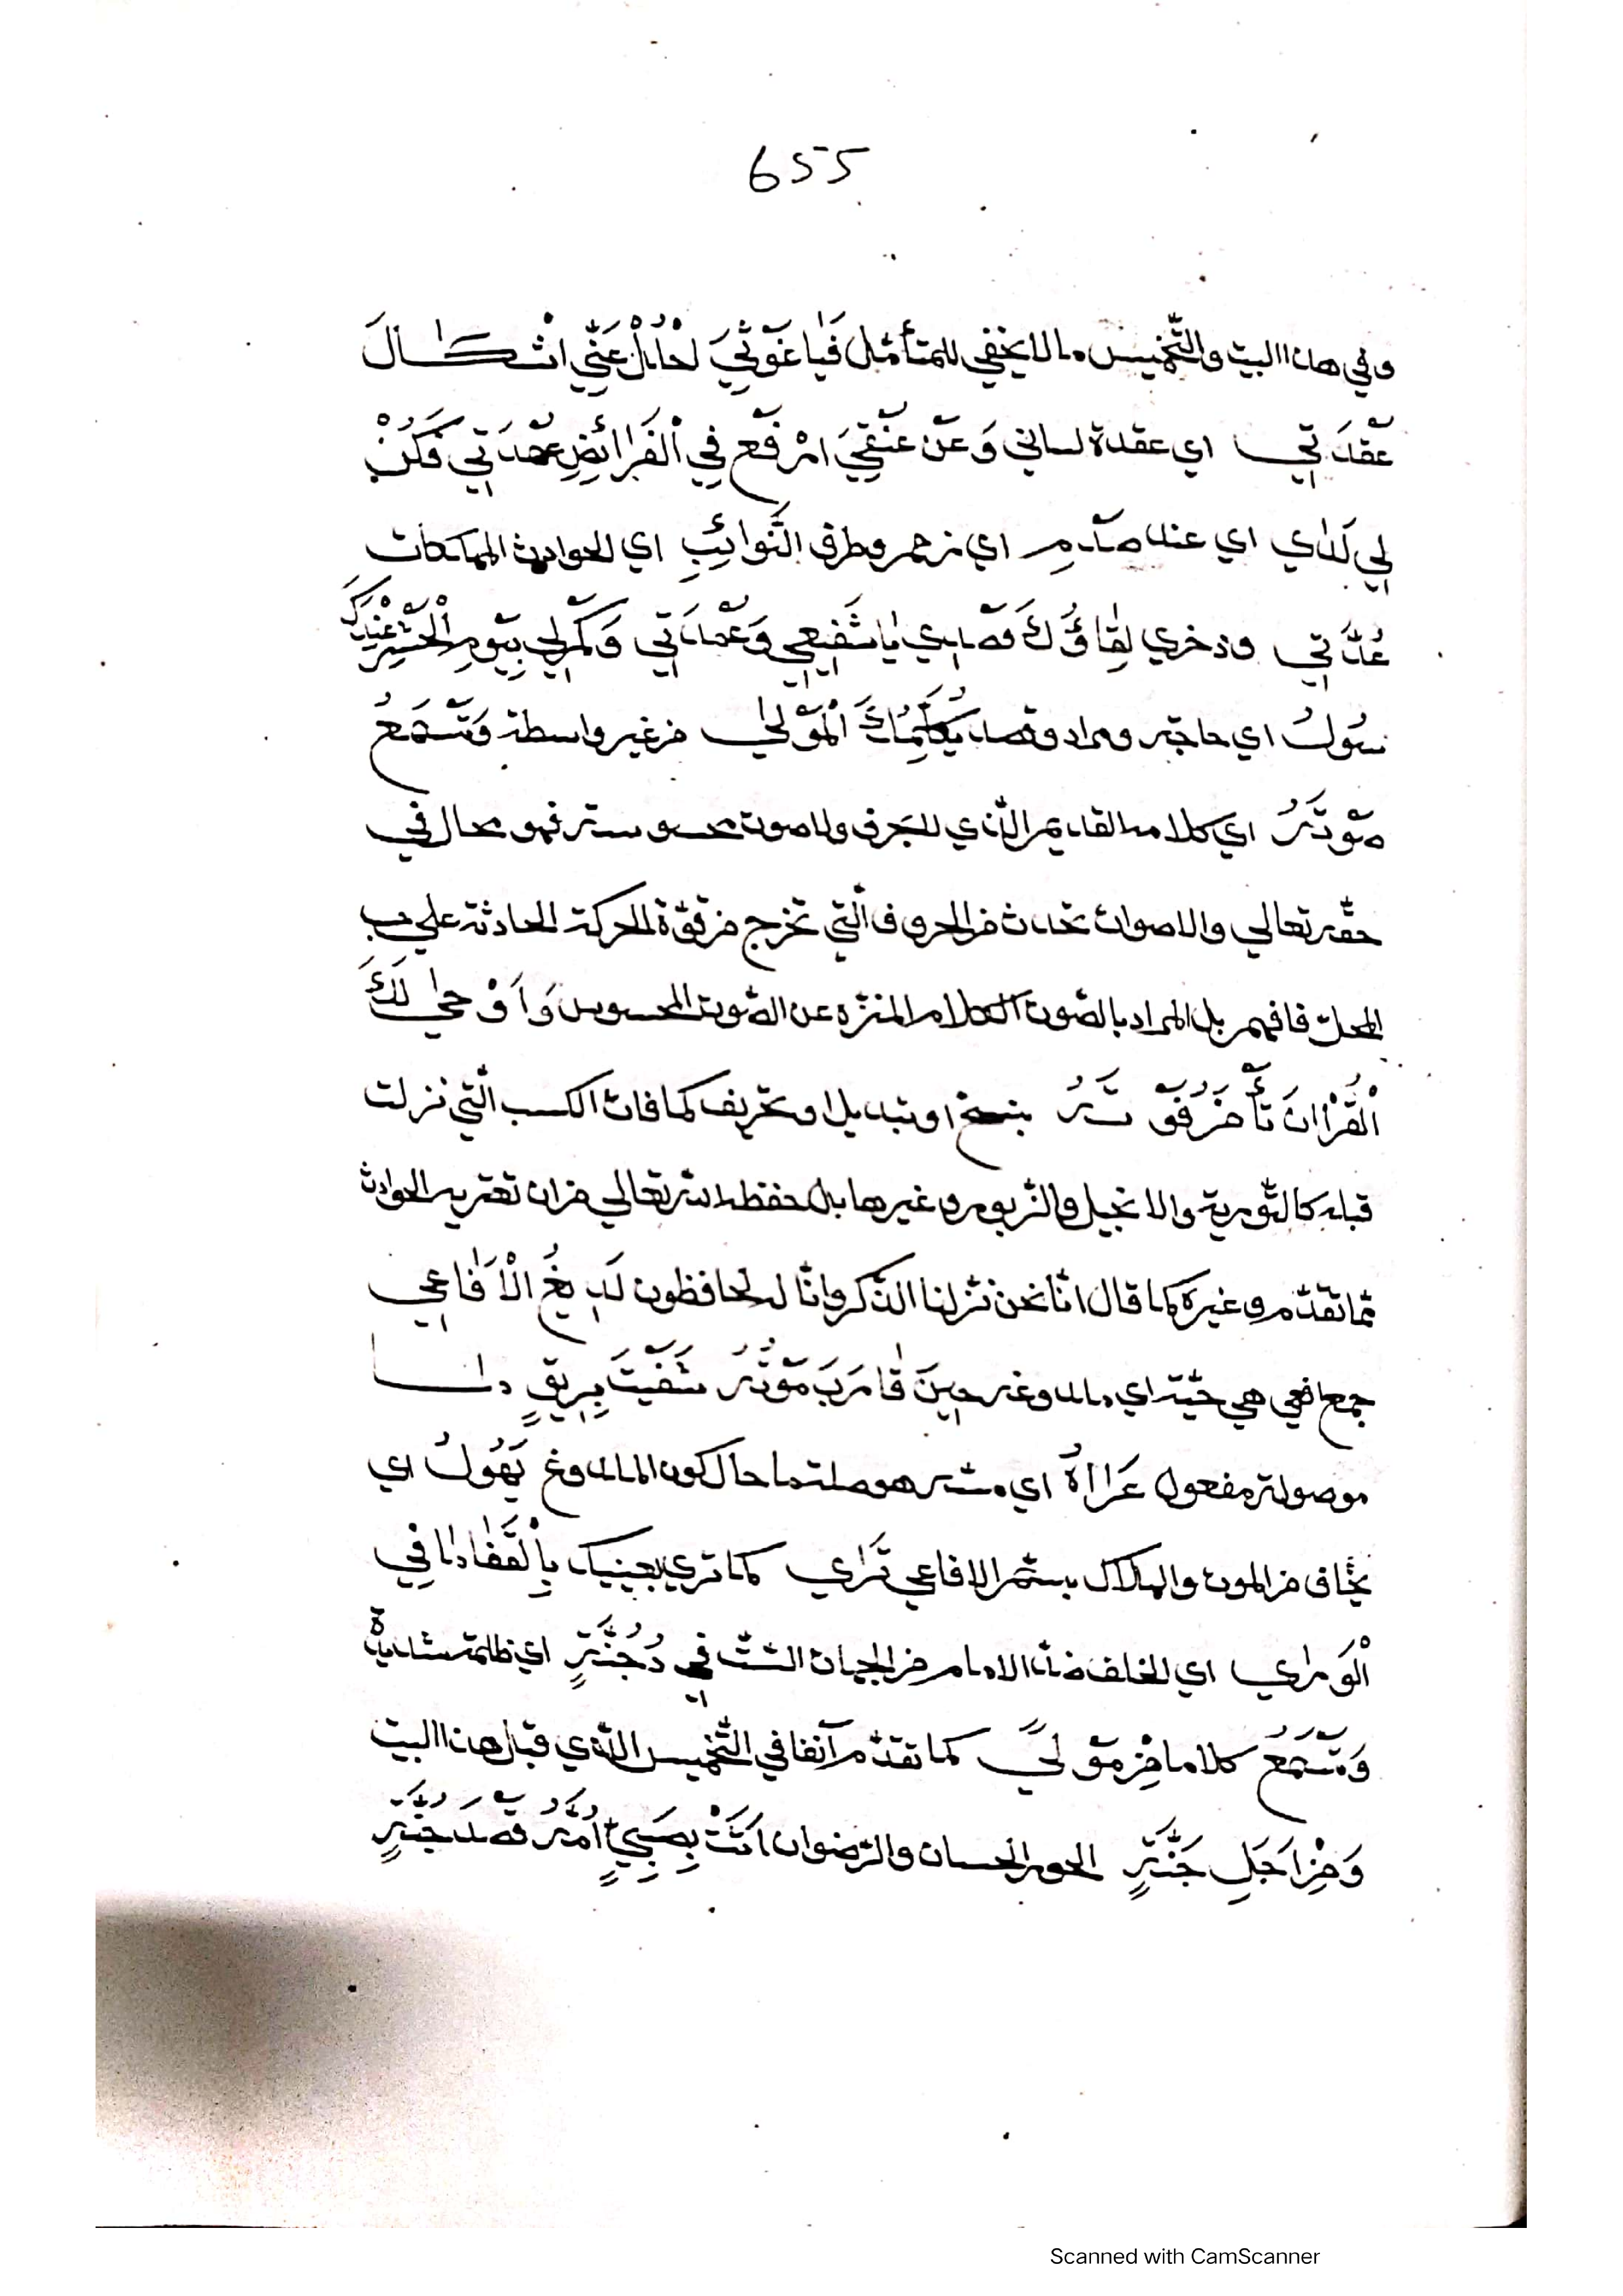 655
وفي هذا البيت والتخميس ما لا يخفي للمتأمل فَيَا غَوْثِيَ احْلُلْ عَنِّي اشْكَالَ
عُقْدَتِي اي عقدة لساني وَعَنْ عُنُقِيَ ارْفَعْ فِي الْفَرَائِضِ عُهْدَتِي وَكُنْ
لِي لَدَي اي عند صَدْمِ اي زحم وطرق النَّوَائِبِ اي الحوادث المهلكات
عُدَّتِي وذخري لِقَاؤُكَ قَصْدِي يَا شَفِيعِي وَعُمْدَتِي وَكَمْ لِي بِيَوْمِ الْحَشْرِ عِنْدَكَ
سُولُ اي حاجة ومراد وقصد يُكَلِّمُكَ الْمَوْلَي من غير واسطة وَتَسْمَعُ
صَوْتَهُ اي كلامه القديم الّذي للحرف ولا صوت محسوسة فهو محال في
حقّه تعالي والاصوات تحدث من الحروف الّتي تخرج من قوّة الحركة الحادثة علي
المحلّ فافهم بل المراد بالصّوت الكلام المنزّه عن الصّوت المحسوس وَاَوْحَي لَكَ
الْقُرْاٰنَ تَأْمَنُ فَوْتَهُ بنسخ او تبديل او تحريف كما فات الكسب الّتي نزلت
قبله كالتّورية والانجيل والزّبور وغيرها بل حفظه الله تعالي من ان تعتريه الحوادث
ممّا تقدّم وغيره كما قال انّا نحن نزلنا الذّكر وانّا له لحافظون لَدِيغُ الْاَفَاعِي
جمع افعي هي حيّة اي ملدوغه حِينَ قَارَبَ مَوْتُهُ شَفَيْتَ بِرِيقٍ
موصولة مفعول عَرَاهُ اي مسّه هو صلة ما حال كون الملدوغ يَهُولُ اي
يخاف من الموت والهلاك بسمّ الافاعي تَرَاي كما تري بعينيك بِالْقَفَا مَا فِي
الْوَرَاي اي الخلف ضدّ الامام من الجهات السّتّ فِي دُجُنَّةٍ اي ظلمة شديدة
وَتَسْمَعُ كلاما مِنْ مَوْلَيً كما تقدّم آنفا في التّخميس الّذي قبل هذا البيت
وَمِنْ اَجَلِ جَنَّةٍ الحور الحسان والرّضوان اَتَتْ بِصَبِيٍّ اُمُّهُ قَصْدَ جُنَّةٍ
Scanned with CamScanner